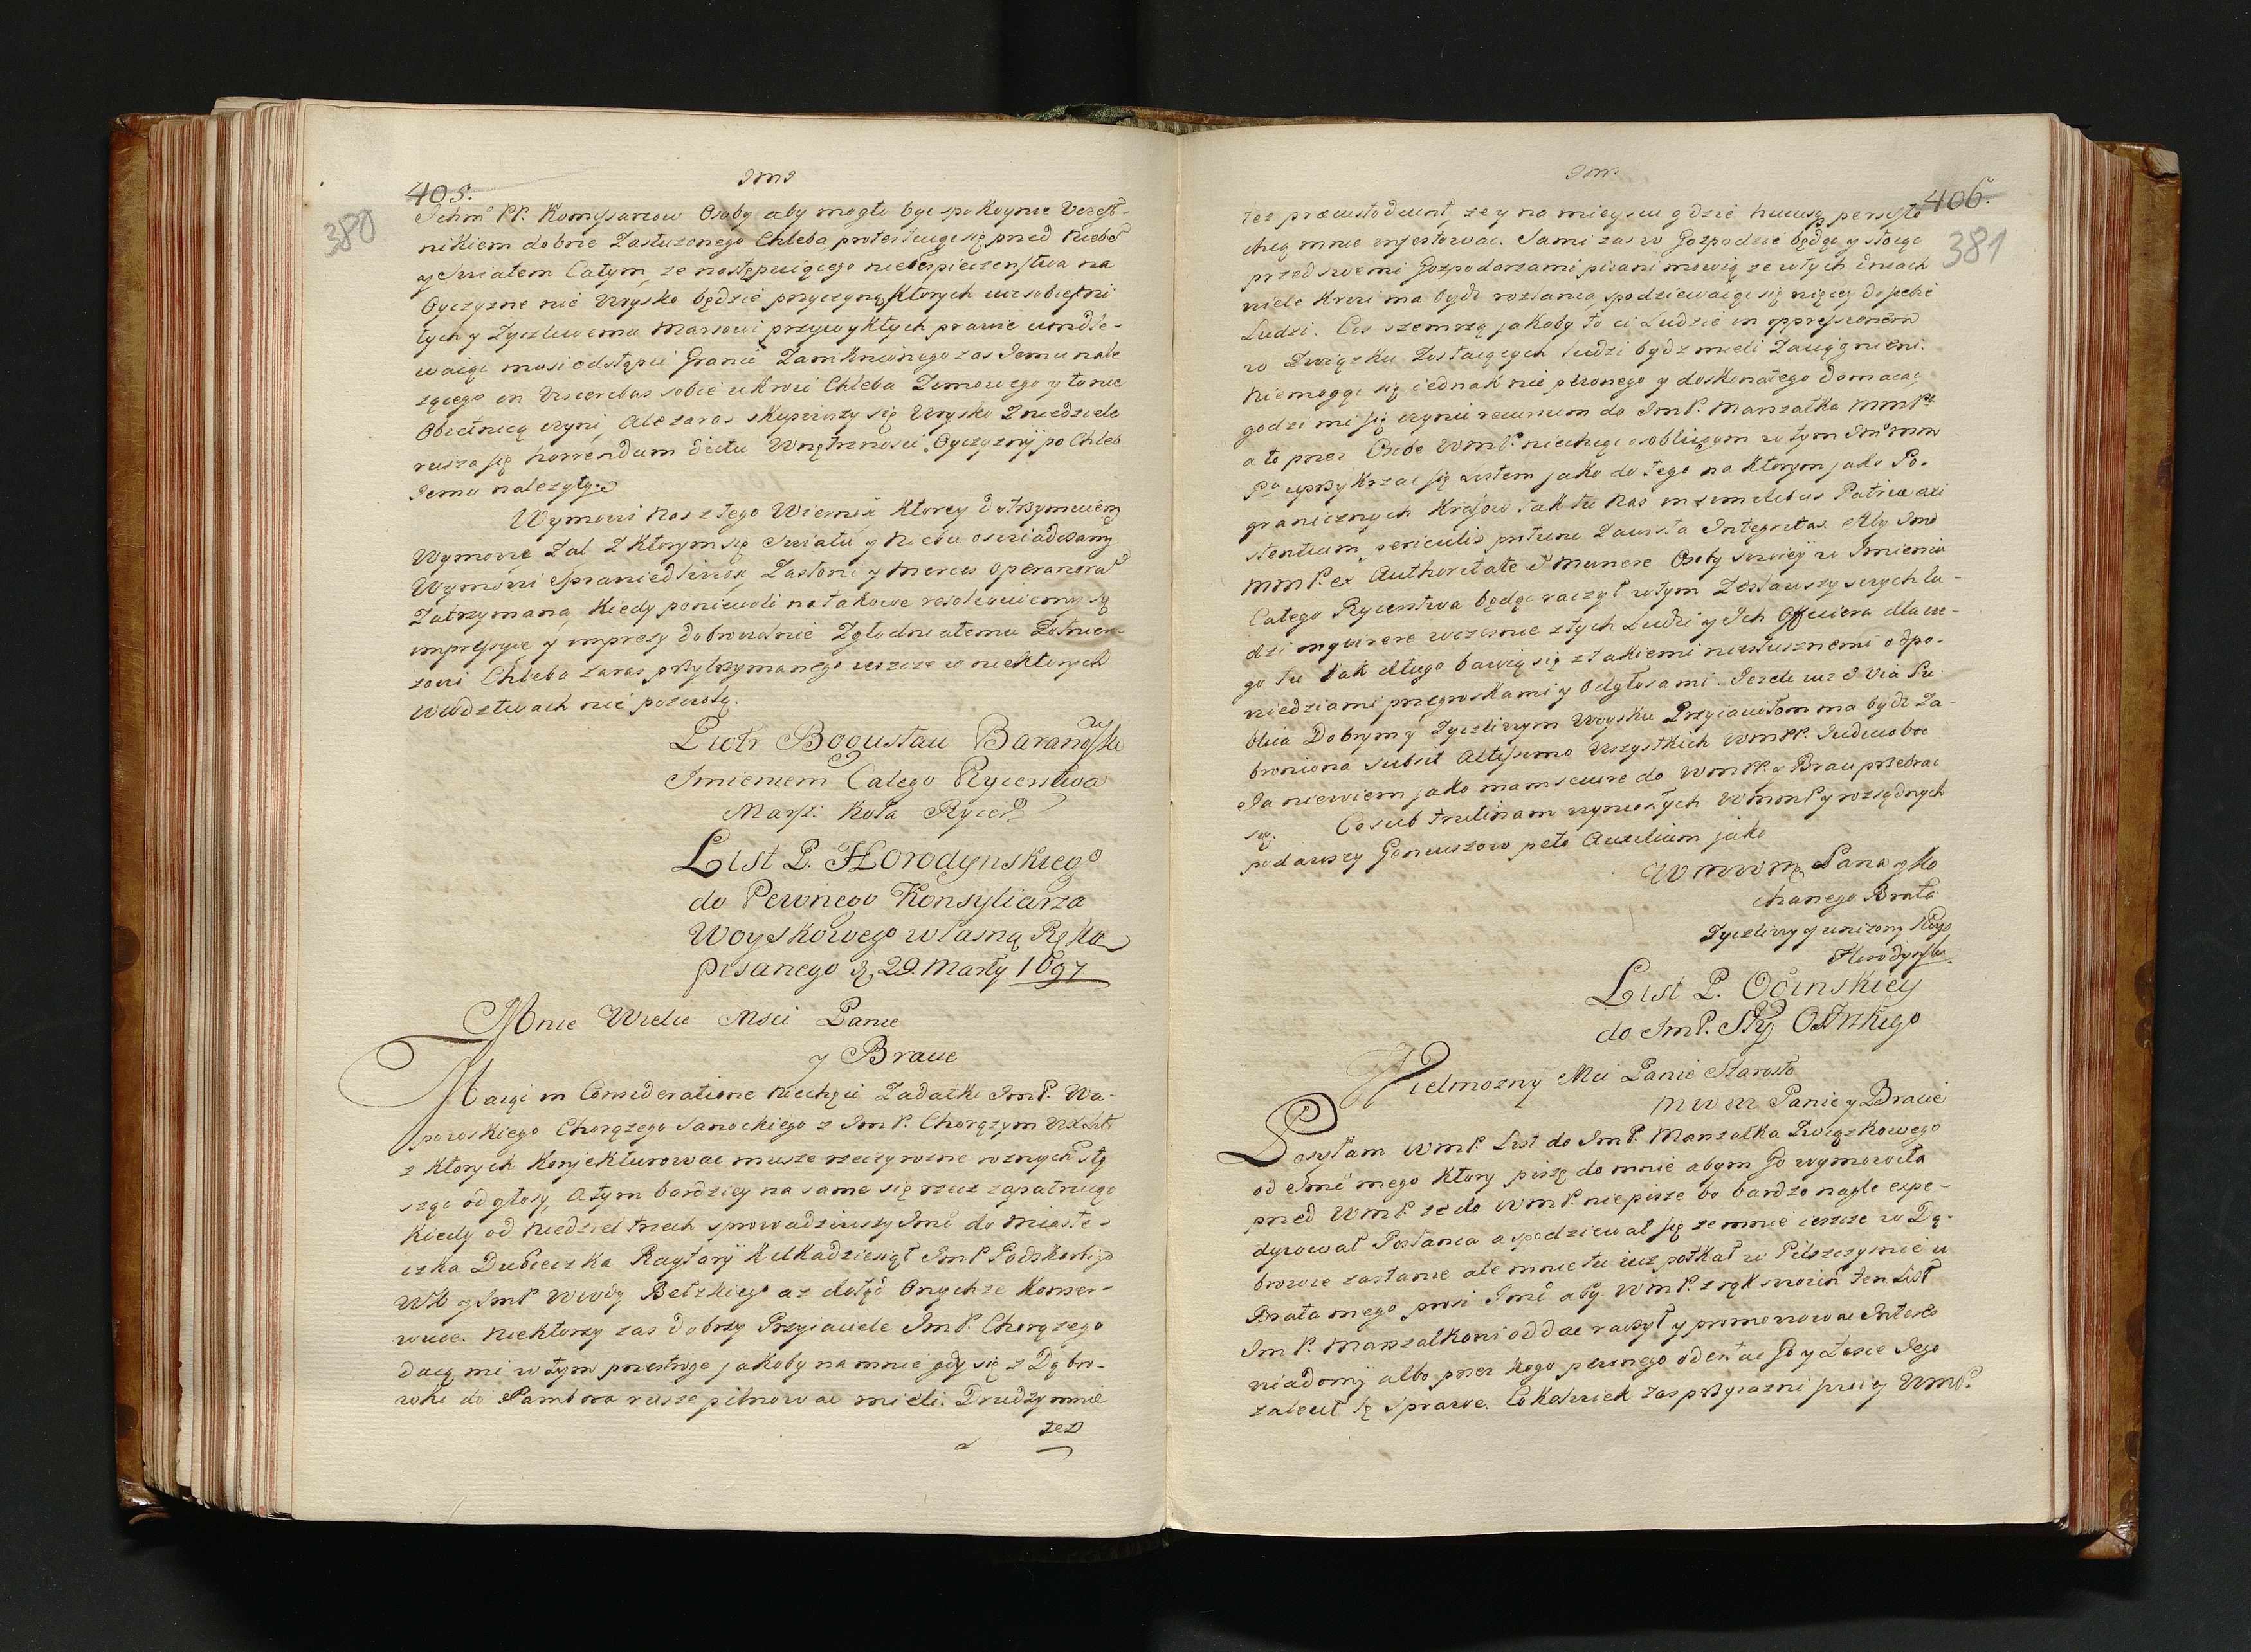 405.
380
Ichm PP. Komysarzow Osoby aby mogło byc spokoynie Uczest-
nikiem dobrze Zasłuzonego Chleba protestuiąc się przed Niebẽ
y Swiatem Całym, ze następuiącego niebespieczenstwa na
Oyczyznę nie Woysko będzie przyczyną,
tych y Zyczliwemu Marsowi przywykłych prawie omdle-
waiąc musi odstąpic Granic Zamknionego zas Jemu nale
zącego in Visceribus sobie Chleba Zimowego y
Obietnicą czyni, Ale zaras skupiwszy się Woysko z niedziele
rusza się horrendum dictu Wnętrznosci Oyczyzny po Chleb
Jemu nalezyty.
Wymowi nas z tego Wiernosc ktorey dotrzymuiem
Wymowi Zal z ktorym się Swiatu y Niebu oswiadczamy
Wymowi Sprawiedliwosc Zasłoni y Merces operariorũ
Zatrzymana, Kiedy poniewoli na takowe resolwuiemy się
impressye y imprezy dobrowolnie Zgłodniałemu Zołnier-
zowi Chleba zaras przytrzymanego ieszcze w niektorych
Wudztwach nie pozwolą.
Piotr Bogusław Baranowski
Imieniem Całego Rycerstwa
Marsz: Koła Rycer:
List P. Horodynskiego
do Pewnego Konsyliarza
Woyskowego własną Ręką
pisanego d, 29. Marty 1697
Mnie Wielce Msci Panie
y Bracie
Maiąc in Consideratione niechęci Zadatki ImP. Wa-
powskiego Chorązego Sanockiego z ImP. Chorązym
z ktorych Konjekturowac musze rzeczy rozne roznych sły
sząc odgłosy, A tym bardziey na same się rzecz zapatruiąc
kiedy od niedziel trzech sprowadziwszy do Miaste-
czka Dubiecka Raytary kilkadziesiąt ImP. Podskarbiego
WK y ImP Wwdy Bełzkiego az dotąd Onychze Konser-
wuie. Niektorzy zas dobrzy Przyiaciele ImP. Chorązego
daią mi w tym przestroge jakoby na mnie gdy się z Dąbro-
wki do Sambora rusze pilnowac mieli. Drudzy mnie
tez
406.
381
Tez praecustodiunt, ze y na mieyscu gdzie hucusq persisto
chcą mnie infestowac. Sami zas w Gospodzie będąc y stoiąc
przed swemi Gospodarzami pisani mowią ze w tych dniach
wiele Krwi ma bydz rozlania, spodziewaiąc się więcey do siebie
Ludzi. Cos szemrzą jakoby to ci Ludzie in oppressionem
w Związku Zostaiących ludzi bydz mieli Zaciągnieni.
Niemogąc się iednak nic pewnego y doskonałego domacac,
godzi mi się czynic recursum do ImP. Marszałka MmPa
a to przez Osobe WmP. niechcąc
Pa uprzykrzac się Listem jako do tego na ktorym jako Po-
granicznych Kraiow tak tu nas in limitibus Patriae exi
stentium, periculis Zawisła Integritas. Aby Imc
MmP. ex Authoritate et Munere Osoby swoiey w Imieniu
Całego Rycerstwa będąc raczył w tym Zesławszy swych lu-
dzi inquirere wczesnie z tych Ludzi y Ich Officiera dla cze-
go tu tak długo bawią się z takiemi niesłusznemi odpo-
wiedziami pogroskami y Odgłosami. Jezeli iuz y Via Pu
blica Dobrym y Zyczliwym Woysku Przyiaciołom ma bydz Za-
broniona subsit Altissimo Wszystkich WmPP. Iudicio bo
Ja niewiem jako mam secure do WmPP. y Braci przebrac
się. Co sub trutinam wyniosłych WmmP y rozsądnych
podawszy Geniuszow peto Auxilium jako
WmMm Pana y Ko
chanego Brata
Zyczliwy y unizony sługa
Horodynski
List P. Ocinskiey
do ImP. Stty
Wielmozny Mci Panie Starosto
M W M Panie y Bracie
Posyłam WmP. List do ImP. Marszałka Związkowego
od Imci mego ktory piszę do mnie abym Go wymowiła
przed WmP. ze do WmP. nie pisze bo bardzo nagle expe-
dyiował Posłanca a spodziewał się ze mnie ieszcze w Dą-
browie zastanie ale mnie tu iuz potkał w Pilszczynie u
Brata mego prosi Imc aby WmP. z rąk swoich ten List
ImP. Marszałkowi oddac raczył y promowowac Interes
wiadomy albo przez kogo pewnego odesłac Go y Łasce Jego
zalecic tę sprawe. Cokolwiek zas przyiazni swoiey WmP.